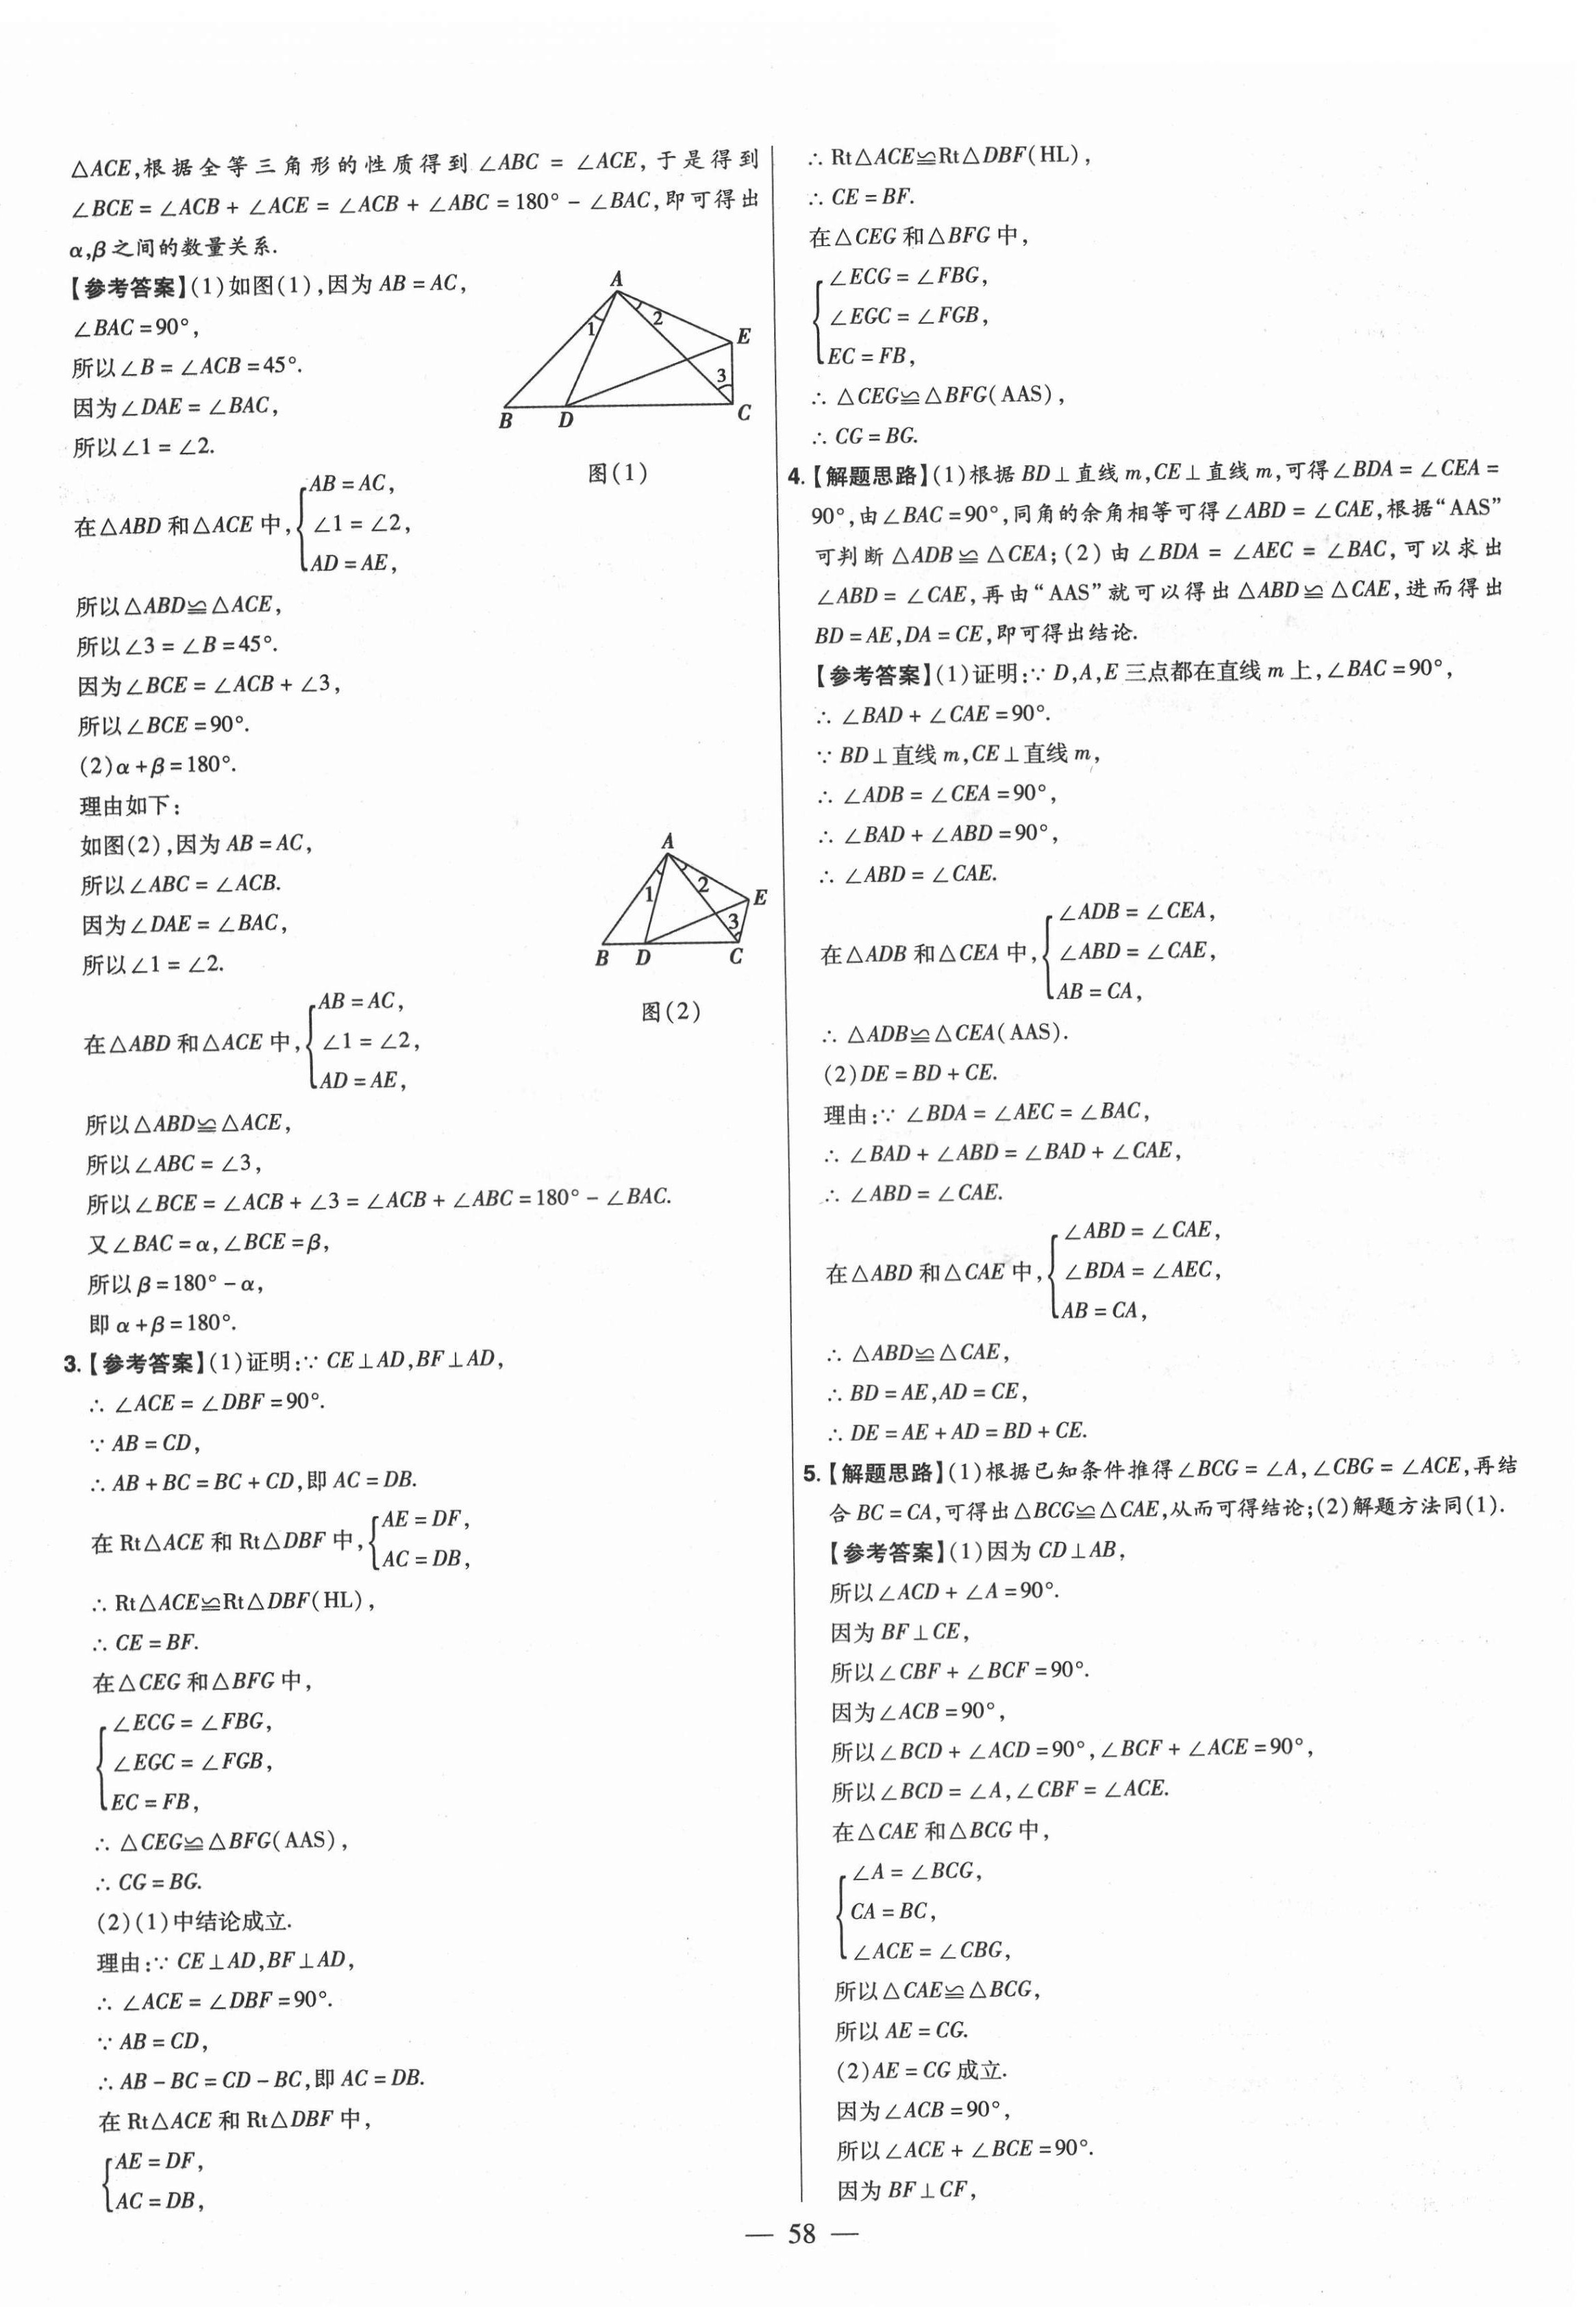 △ACE,根据全等三角形的性质得到∠ABC = ∠ACE,于是得到
∠BCE = ∠ACB + ∠ACE = ∠ACB + ∠ABC = 180° - ∠BAC,即可得出
α,β之间的数量关系.
【参考答案】(1)如图(1),因为AB = AC,
∠BAC = 90°,
所以∠B = ∠ACB = 45°.
因为∠DAE = ∠BAC,
所以∠1 = ∠2.
A
1
2
E
3
B
D
C
图(1)
AB = AC,
在△ABD和△ACE中,
∠1 = ∠2,
AD = AE,
所以△ABD≌△ACE,
所以∠3 = ∠B = 45°.
因为∠BCE = ∠ACB + ∠3,
所以∠BCE = 90°.
(2)α + β = 180°.
理由如下:
如图(2),因为AB = AC,
所以∠ABC = ∠ACB.
因为∠DAE = ∠BAC,
所以∠1 = ∠2.
A
1
2
E
3
B
D
C
图(2)
AB = AC,
在△ABD和△ACE中,
∠1 = ∠2,
AD = AE,
所以△ABD≌△ACE,
所以∠ABC = ∠3,
所以∠BCE = ∠ACB + ∠3 = ∠ACB + ∠ABC = 180° - ∠BAC.
又∠BAC = α,∠BCE = β,
所以β = 180° - α,
即α + β = 180°.
3.【参考答案】(1)证明:∵ CE⊥AD,BF⊥AD,
∴ ∠ACE = ∠DBF = 90°.
∵ AB = CD,
∴ AB + BC = BC + CD,即AC = DB.
在Rt△ACE和Rt△DBF中,
AE = DF,
AC = DB,
∴ Rt△ACE≌Rt△DBF(HL),
∴ CE = BF.
在△CEG和△BFG中,
∠ECG = ∠FBG,
∠EGC = ∠FGB,
EC = FB,
∴ △CEG≌△BFG(AAS),
∴ CG = BG.
(2)(1)中结论成立.
理由:∵ CE⊥AD,BF⊥AD,
∴ ∠ACE = ∠DBF = 90°.
∵ AB = CD,
∴ AB - BC = CD - BC,即AC = DB.
在Rt△ACE和Rt△DBF中,
AE = DF,
AC = DB,
∴ Rt△ACE≌Rt△DBF(HL),
∴ CE = BF.
在△CEG和△BFG中,
∠ECG = ∠FBG,
∠EGC = ∠FGB,
EC = FB,
∴ △CEG≌△BFG(AAS),
∴ CG = BG.
4.【解题思路】(1)根据BD⊥直线m,CE⊥直线m,可得∠BDA = ∠CEA =
90°,由∠BAC = 90°,同角的余角相等可得∠ABD = ∠CAE,根据“AAS”
可判断△ADB≌△CEA;(2)由∠BDA = ∠AEC = ∠BAC,可以求出
∠ABD = ∠CAE,再由“AAS”就可以得出△ABD≌△CAE,进而得出
BD = AE,DA = CE,即可得出结论.
【参考答案】(1)证明:∵ D,A,E三点都在直线m上,∠BAC = 90°,
∴ ∠BAD + ∠CAE = 90°.
∵ BD⊥直线m,CE⊥直线m,
∴ ∠ADB = ∠CEA = 90°,
∴ ∠BAD + ∠ABD = 90°,
∴ ∠ABD = ∠CAE.
∠ADB = ∠CEA,
在△ADB和△CEA中,
∠ABD = ∠CAE,
AB = CA,
∴ △ADB≌△CEA(AAS).
(2)DE = BD + CE.
理由:∵ ∠BDA = ∠AEC = ∠BAC,
∴ ∠BAD + ∠ABD = ∠BAD + ∠CAE,
∴ ∠ABD = ∠CAE.
∠ABD = ∠CAE,
在△ABD和△CAE中,
∠BDA = ∠AEC,
AB = CA,
∴ △ABD≌△CAE,
∴ BD = AE,AD = CE,
∴ DE = AE + AD = BD + CE.
5.【解题思路】(1)根据已知条件推得∠BCG = ∠A,∠CBG = ∠ACE,再结
合BC = CA,可得出△BCG≌△CAE,从而可得结论;(2)解题方法同(1).
【参考答案】(1)因为CD⊥AB,
所以∠ACD + ∠A = 90°.
因为BF⊥CE,
所以∠CBF + ∠BCF = 90°.
因为∠ACB = 90°,
所以∠BCD + ∠ACD = 90°,∠BCF + ∠ACE = 90°,
所以∠BCD = ∠A,∠CBF = ∠ACE.
在△CAE和△BCG中,
∠A = ∠BCG,
CA = BC,
∠ACE = ∠CBG,
所以△CAE≌△BCG,
所以AE = CG.
(2)AE = CG成立.
因为∠ACB = 90°,
所以∠ACE + ∠BCE = 90°.
因为BF⊥CF,
— 58 —